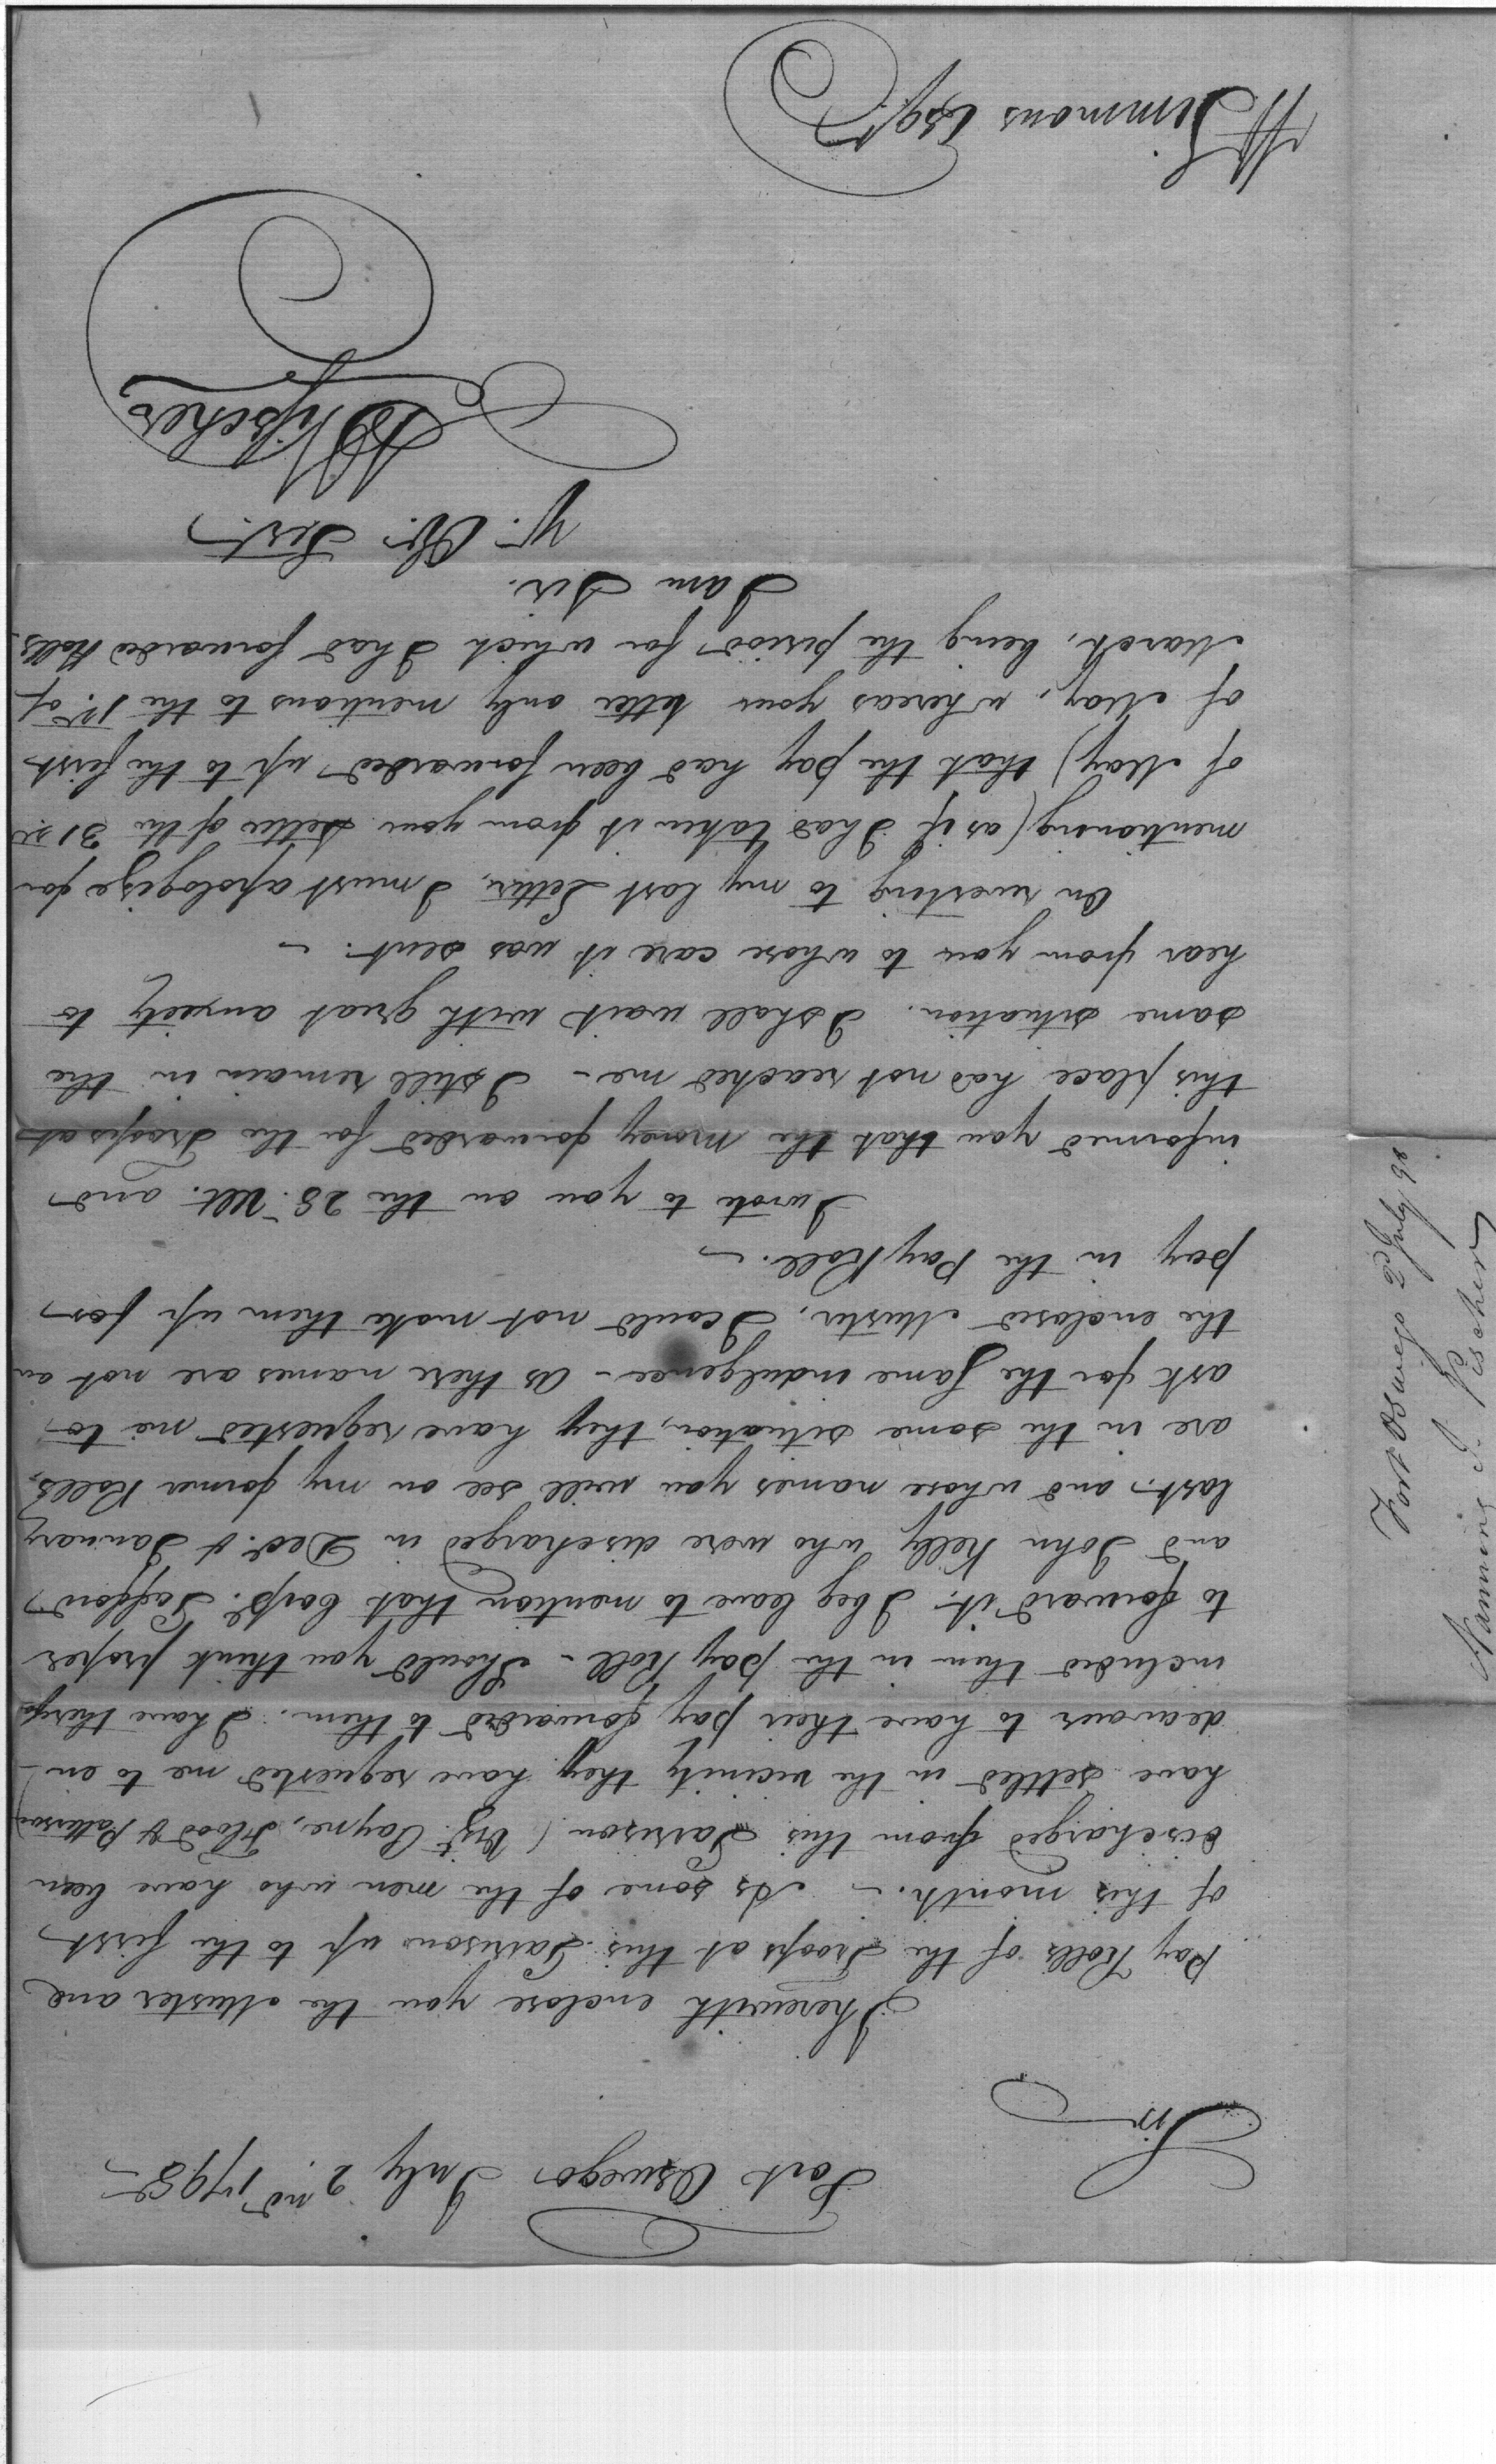 Fort Oswego July 2nd 1798
Sir
I herewith enclose you the Muster and
Pay Rolls of the Troops at this Garrison up to the first
of this month. - As some of the men who have been
discharged from this Garrison (Vizt. Payne, Flood & Patterson)
have settled in the vicinity they have requested me to en-
deavour to have their pay forwarded to them. I have therefore
included them in the pay Roll - Should you think proper
to forward it. I beg leave to mention that Corpl. Safford
and John Kelly who were discharged in Decr. & January
last. and whose names you will see on my former Rolls,
are in the same situation, they have requested me to
ask for the same indulgence - As there names are not on
the enclosed Muster, I could not make them up for
pay in the Pay Roll. -
I wrote to you on the 28 Ult. and
informed you that the money forwarded for the Troops at
this place had not reached me - I still remain in the
same situation. I shall wait with great anxiety to
hear from you to whose care it was sent. -
On reverting to my last Letter, I must apologize for
mentioning (as if I had taken it from your letter of the 31st
of May) that the pay had been forwarded up to the first
of May, whereas your letter only mentions to the 1st. of
March, being the period for which I had forwarded Rolls.
I am Sir.
Yr. Ob. Sert.
Visscher
W Simmons Esqr
Fort Oswego 2d July 98
Nanning I. Visscher